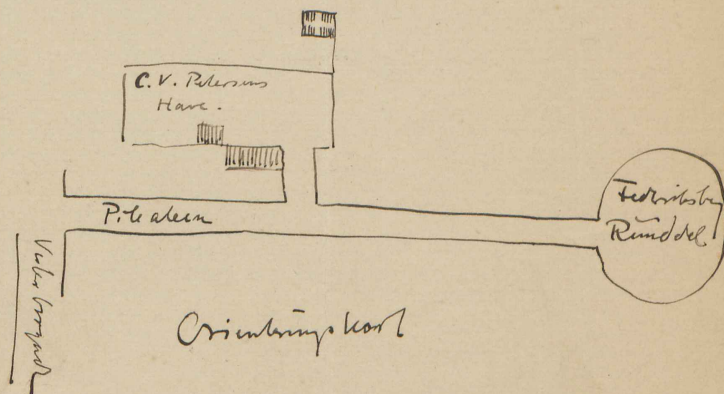 C. V. Petersens
Have.
Pilealeen
Fredriksberg
Runddel
Vesterbrogade
Orienteringskort